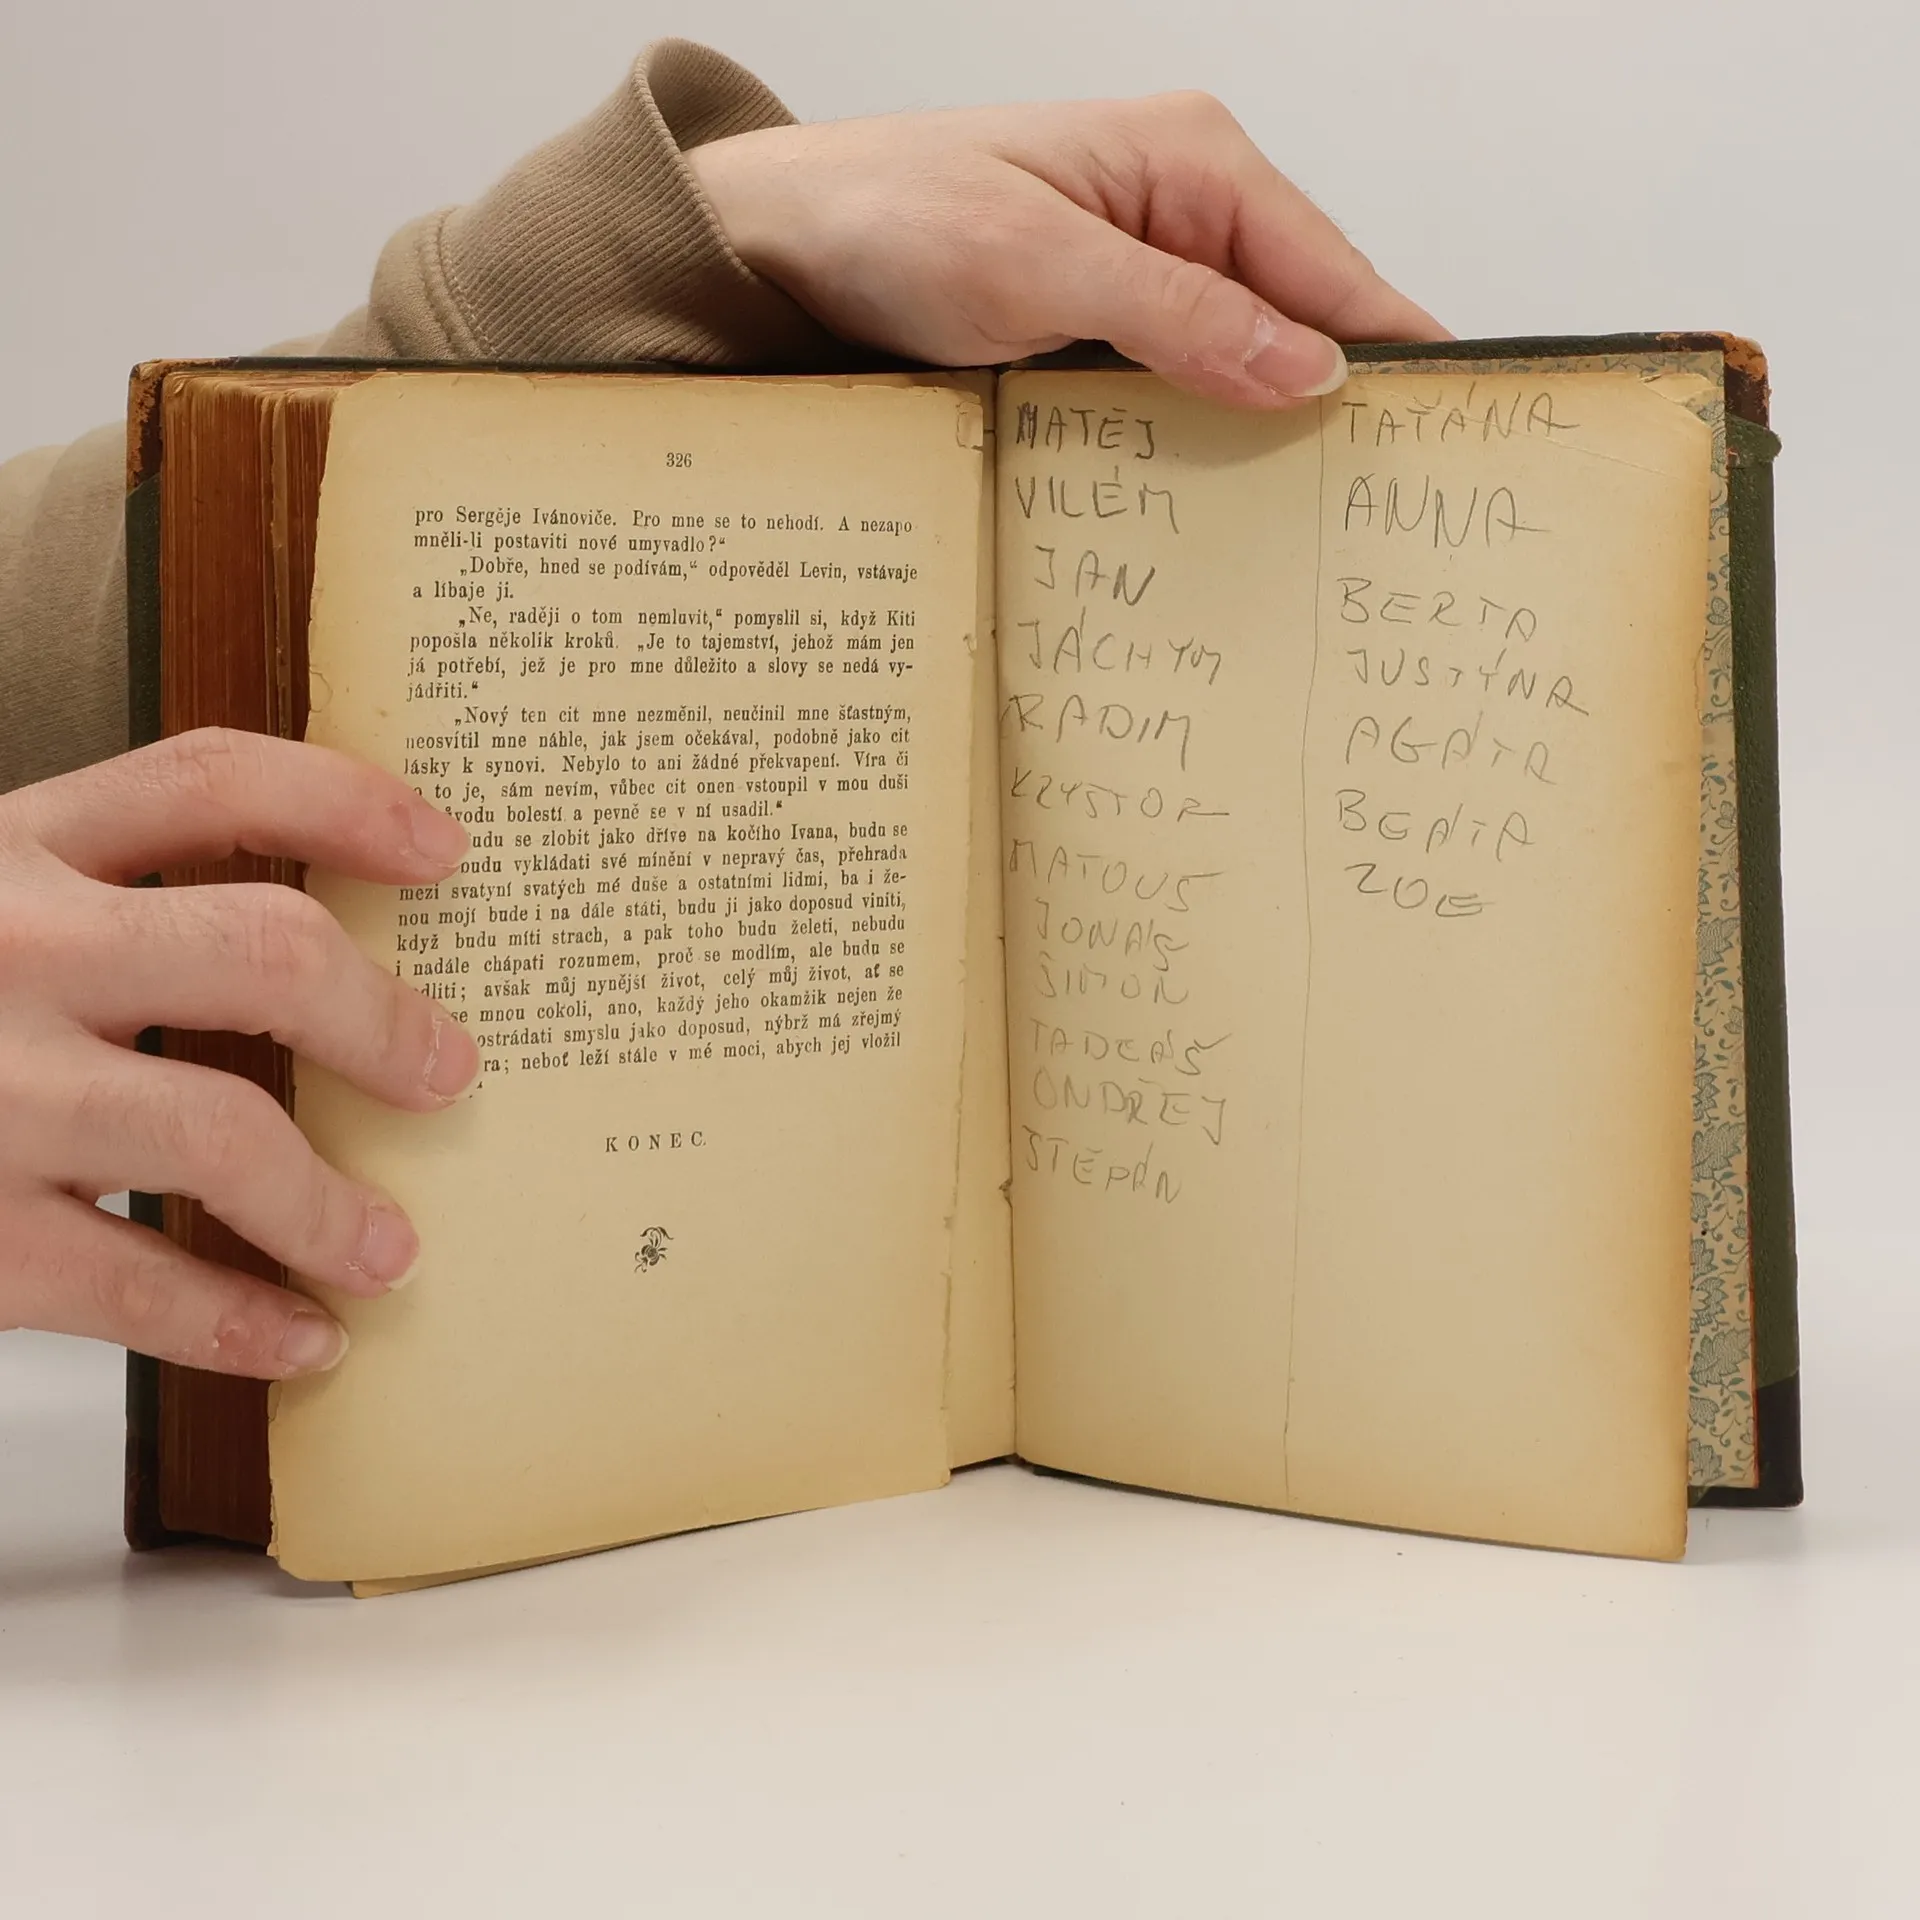 326
pro Sergěje Ivánoviče. Pro mne se to nehodí. A nezapo
mněli-li postaviti nové umyvadlo?“
„Dobře, hned se podívám,“ odpověděl Levin, vstávaje
a líbaje ji.
„Ne, raději o tom nemluvit,“ pomyslil si, když Kiti
popošla několik kroků. „Je to tajemství, jehož mám jen
já potřebí, jež je pro mne důležito a slovy se nedá vy-
jádřiti.“
„Nový ten cit mne nezměnil, neučinil mne šťastným,
neosvítil mne náhle, jak jsem očekával, podobně jako cit
lásky k synovi. Nebylo to ani žádné překvapení. Víra či
to je, sám nevím, vůbec cit onen vstoupil v mou duši
vodu bolestí a pevně se v ní usadil.“
udu se zlobit jako dříve na kočího Ivana, budu se
budu vykládati své mínění v nepravý čas, přehrada
mezi svatyní svatých mé duše a ostatními lidmi, ba i že-
nou mojí bude i na dále státi, budu ji jako doposud viniti,
když budu míti strach, a pak toho budu želeti, nebudu
i nadále chápati rozumem, proč se modlím, ale budu se
dliti; avšak můj nynější život, celý můj život, ať se
se mnou cokoli, ano, každý jeho okamžik nejen že
ostrádati smyslu jako doposud, nýbrž má zřejmý
ra; neboť leží stále v mé moci, abych jej vložil
KONEC.
MATĚJ
VILÉM
JAN
JÁCHYM
RADIM
KRYŠTOF
MATOUŠ
JONÁŠ
ŠIMON
TADEÁŠ
ONDŘEJ
ŠTĚPÁN
TAŤÁNA
ANNA
BERTA
JUSTÝNA
AGÁTA
BEÁTA
ZOE